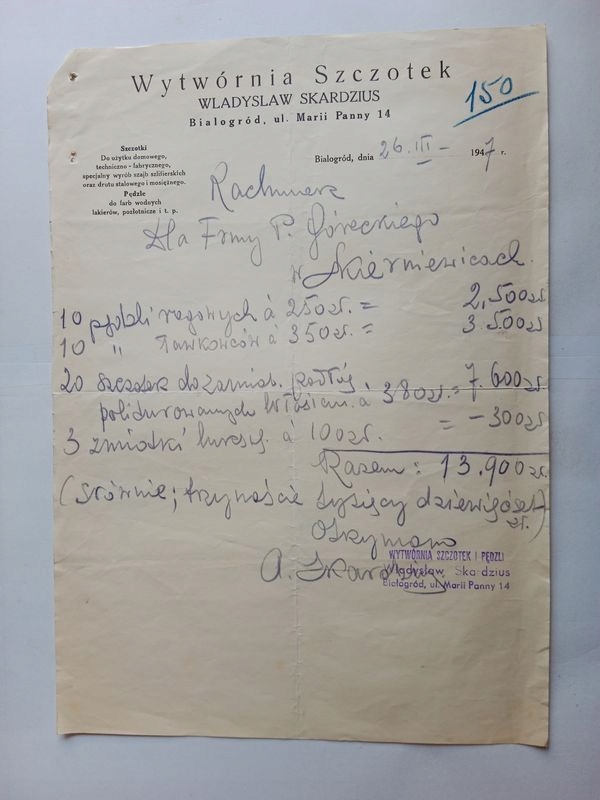 150
Wytwórnia Szczotek
WLADYSLAW SKARDZIUS
Bialogród, ul. Marii Panny 14
Szczotki
Do użytku domowego,
techniczno - fabrycznego,
specjalny wyrób szajb szlifierskich
oraz drutu stalowego i mosiężnego.
Pędzle
do farb wodnych
lakierów, pozłotnicze i t. p.
Bialogród, dnia 26. III - 1947 r.
Rachunek
Dla Firmy P. Góreckiego
w Skierniewicach.
10 rogowych à 250 zł. = 2,500 zł
10 " ławkowców à 350 zł. = 3.500 zł
20 szczotek do zamiat. podłóg
polidurowanych włosian. à 380 zł. = 7.600 zł
3 zmiotki à 100 zł. = - 300 zł
Razem: 13.900 zł.
(słownie; trzynaście tysięcy dziewięćset)
zł.
Otrzymano
A. Skardzius
WYTWÓRNIA SZCZOTEK I PĘDZLI
Wladyslaw Skardzius
Bialogród, ul. Marii Panny 14